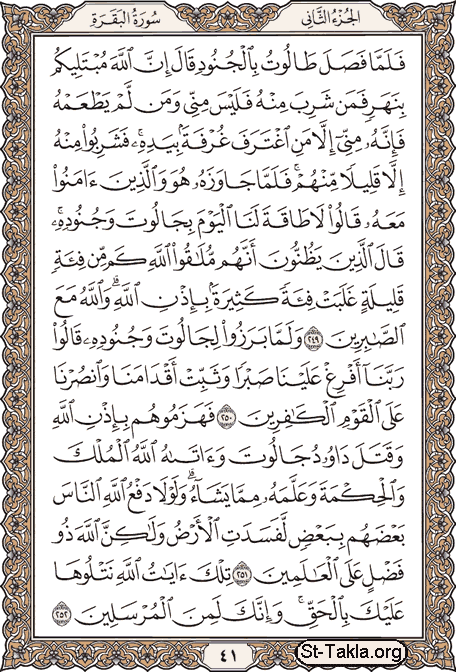 الجُزْءُ الثَّانِي
سُورَةُ البَقَرَةِ
فَلَمَّا فَصَلَ طَالُوتُ بِٱلْجُنُودِ قَالَ إِنَّ ٱللَّهَ مُبْتَلِيكُم
بِنَهَرٍ فَمَن شَرِبَ مِنْهُ فَلَيْسَ مِنِّى وَمَن لَّمْ يَطْعَمْهُ
فَإِنَّهُۥ مِنِّىٓ إِلَّا مَنِ ٱغْتَرَفَ غُرْفَةًۢ بِيَدِهِۦۚ فَشَرِبُوا۟ مِنْهُ
إِلَّا قَلِيلًا مِّنْهُمْۚ فَلَمَّا جَاوَزَهُۥ هُوَ وَٱلَّذِينَ ءَامَنُوا۟
مَعَهُۥ قَالُوا۟ لَا طَاقَةَ لَنَا ٱلْيَوْمَ بِجَالُوتَ وَجُنُودِهِۦۚ
قَالَ ٱلَّذِينَ يَظُنُّونَ أَنَّهُم مُّلَٰقُوا۟ ٱللَّهِ كَم مِّن فِئَةٍ
قَلِيلَةٍ غَلَبَتْ فِئَةً كَثِيرَةًۢ بِإِذْنِ ٱللَّهِۗ وَٱللَّهُ مَعَ
ٱلصَّٰبِرِينَ ٢٤٩ وَلَمَّا بَرَزُوا۟ لِجَالُوتَ وَجُنُودِهِۦ قَالُوا۟
رَبَّنَآ أَفْرِغْ عَلَيْنَا صَبْرًا وَثَبِّتْ أَقْدَامَنَا وَٱنصُرْنَا
عَلَى ٱلْقَوْمِ ٱلْكَٰفِرِينَ ٢٥٠ فَهَزَمُوهُم بِإِذْنِ ٱللَّهِ
وَقَتَلَ دَاوُۥدُ جَالُوتَ وَءَاتَىٰهُ ٱللَّهُ ٱلْمُلْكَ
وَٱلْحِكْمَةَ وَعَلَّمَهُۥ مِمَّا يَشَآءُۗ وَلَوْلَا دَفْعُ ٱللَّهِ ٱلنَّاسَ
بَعْضَهُم بِبَعْضٍ لَّفَسَدَتِ ٱلْأَرْضُ وَلَٰكِنَّ ٱللَّهَ ذُو
فَضْلٍ عَلَى ٱلْعَٰلَمِينَ ٢٥١ تِلْكَ ءَايَٰتُ ٱللَّهِ نَتْلُوهَا
عَلَيْكَ بِٱلْحَقِّۚ وَإِنَّكَ لَمِنَ ٱلْمُرْسَلِينَ ٢٥٢
٤١
St-Takla.org